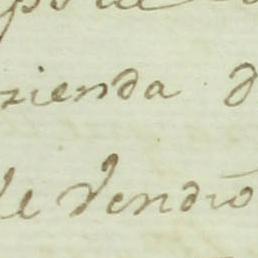 zienda d
le vendio